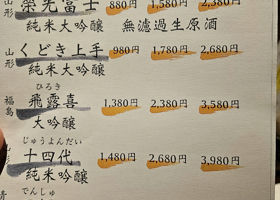 山形 榮光冨士 880 1,580 2,380
純米大吟醸 無濾過生原酒
山形 くどき上手 980 1,780 2,680
純米大吟醸
ひろき
福島 飛露喜 1,380 2,380 3,580
大吟醸
じゅうよんだい
十四代 1,480 2,680 3,980
純米吟醸
でんしゅ
青